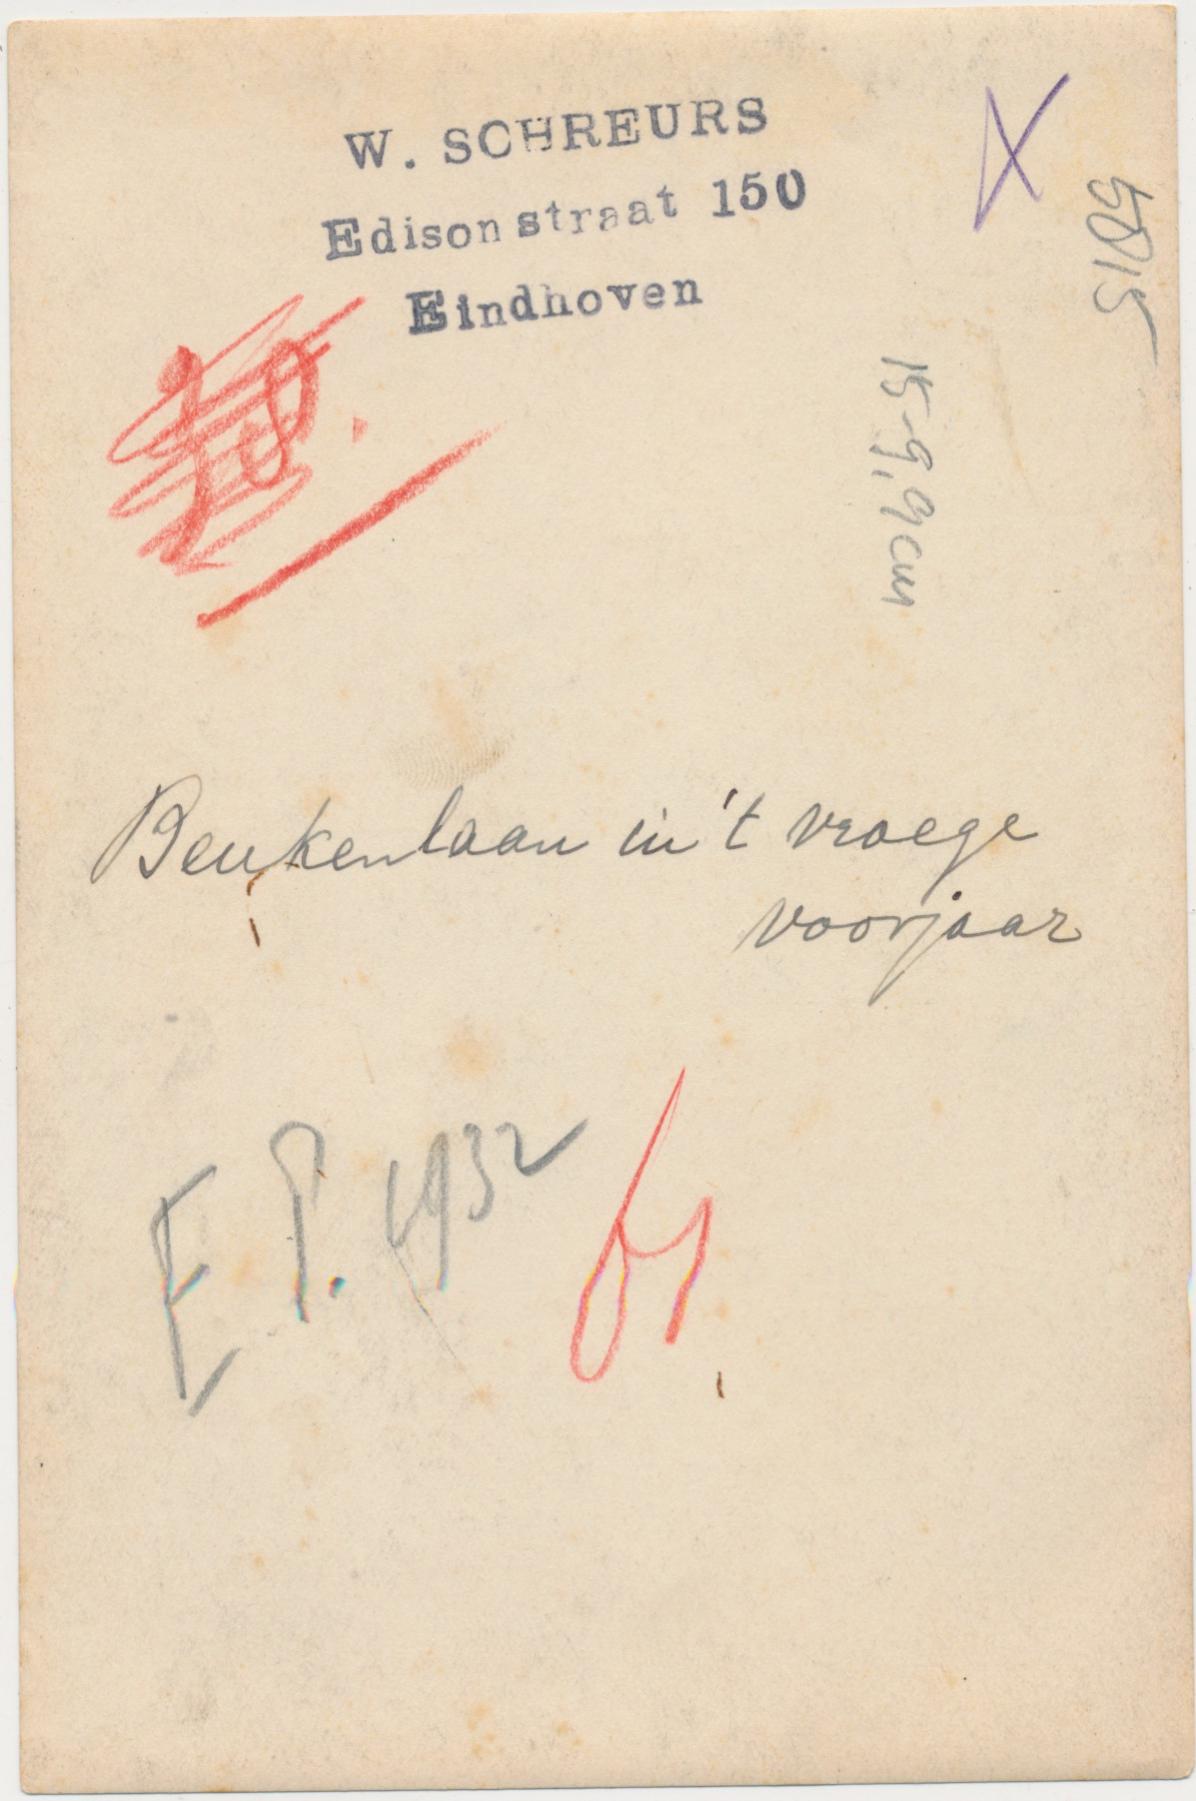 W. SCHREURS
Edisonstraat 150
Eindhoven
5015
15-9,9 cm
Beukenlaan in 't vroege
voorjaar
E P. 1932